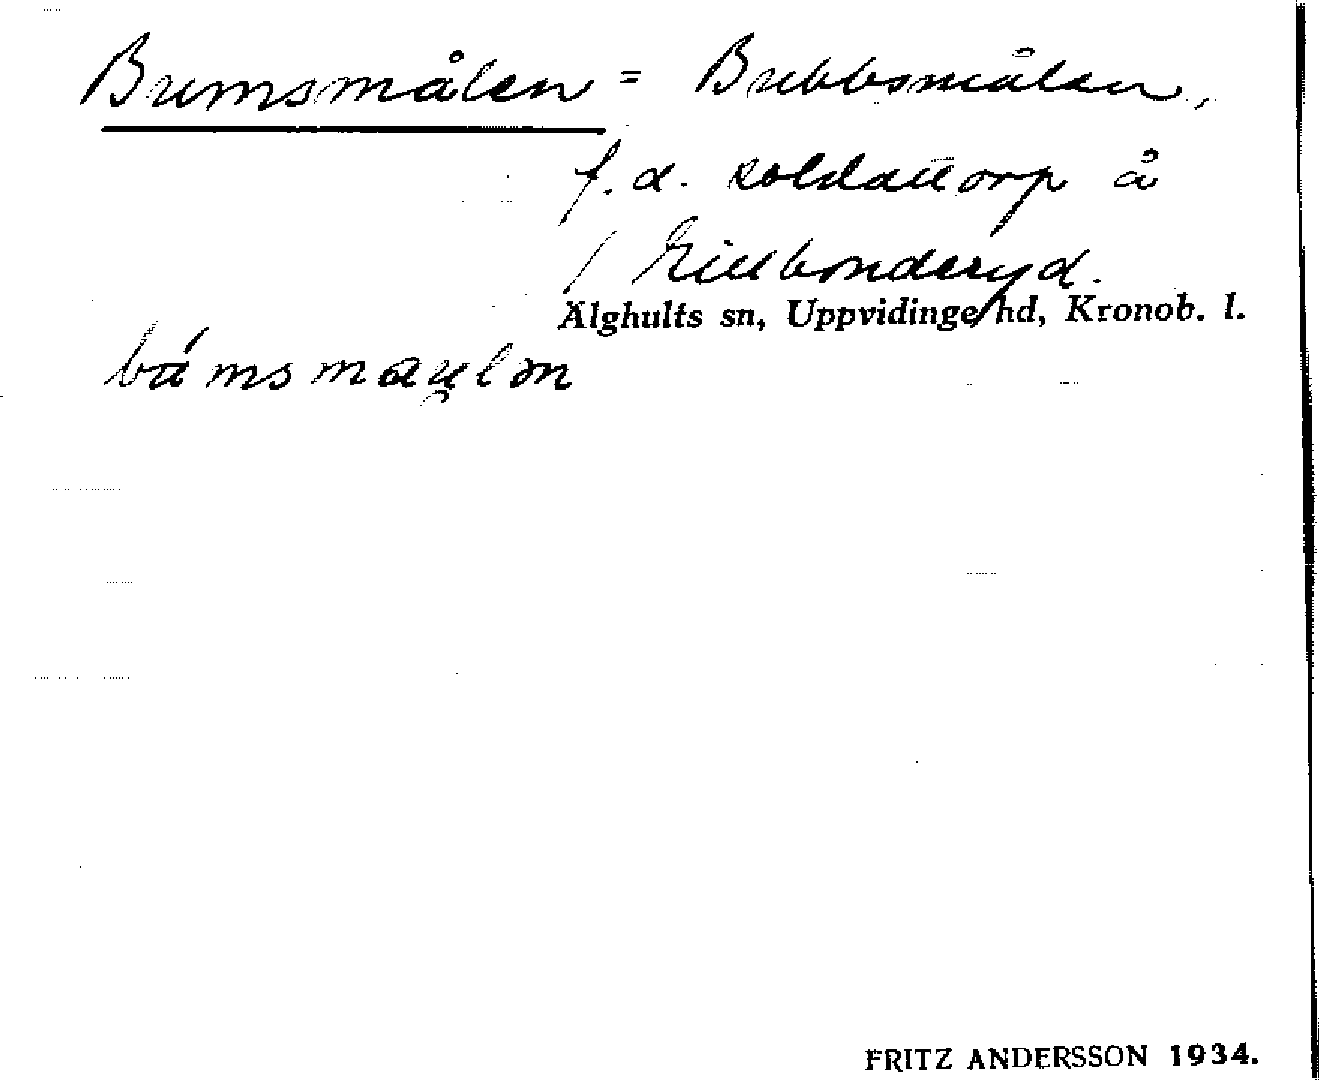 Bumsmålen = Bubbsmålen,
f.d. soldattorp å
/ Lillbonderyd.
Älghults sn, Uppvidinge hd, Kronob. l.
FRITZ ANDERSSON 1934.